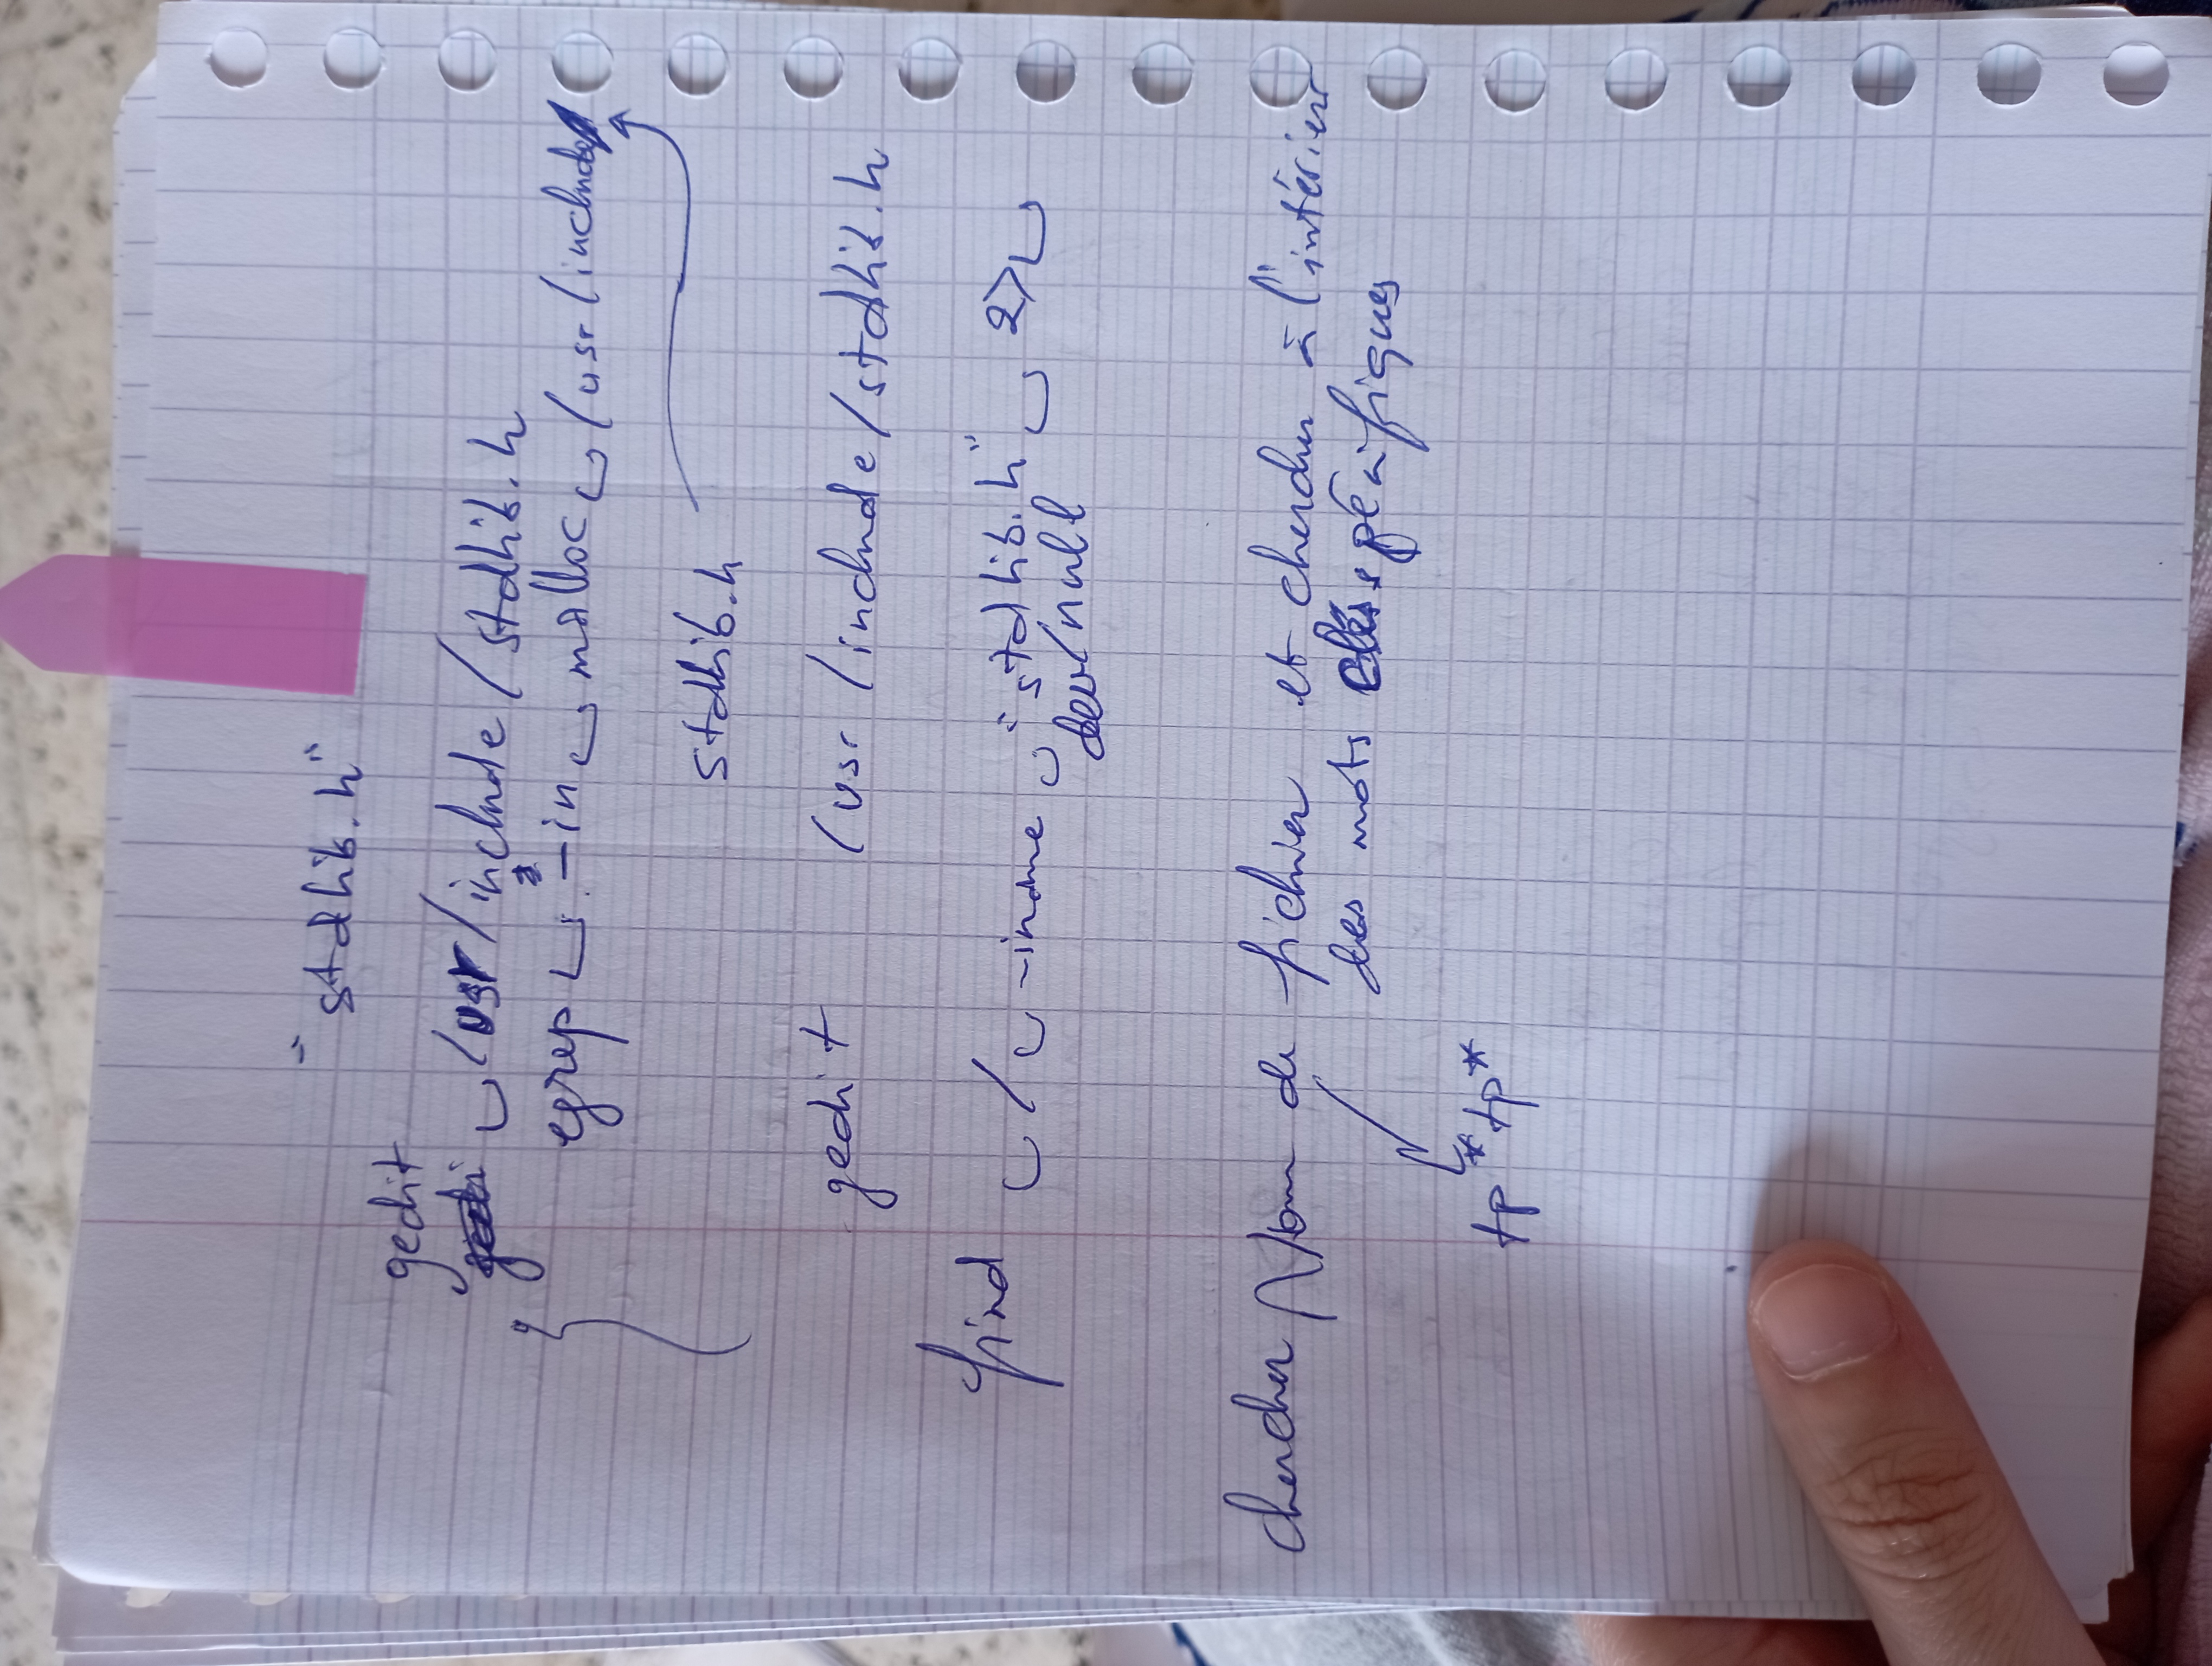 "stdlib.h"
gedit
␣ /usr/include/stdlib.h
egrep ␣ -in ␣ malloc ␣ /usr/include/
stdlib.h
gedit /usr/include/stdlib.h
find ␣ / ␣ -iname ␣ "stdlib.h" ␣ 2> ␣
dev/null
chercher Nom de fichier et chercher à l'intérieur
des mots clés spécifiques
tp*tp*